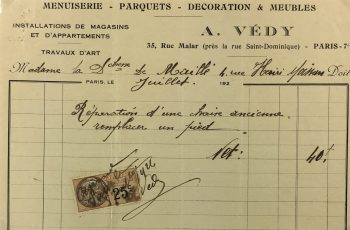 MENUISERIE - PARQUETS - DECORATION & MEUBLES
INSTALLATIONS DE MAGASINS
ET D'APPARTEMENTS
TRAVAUX D'ART
A. VÉDY
35, Rue Malar (près la rue Saint-Dominique) - PARIS-7e
Madame la Dchesse de Maillé 4 rue Henri Doit
PARIS, LE Juillet 192
Réparation d'une chaise ancienne
remplacer un pied
Net: 40f
25c
Védy